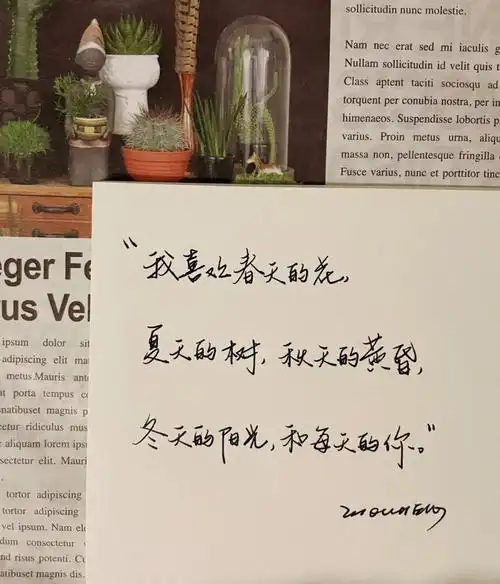 sollicitudin nunc molestie.
Nam nec erat sed mi iaculis
Nullam sollicitudin id velit quis
Class aptent taciti sociosqu ad
torquent per conubia nostra, per
himenaeos. Suspendisse lobortis
varius. Proin metus urna,
massa non, pellentesque fringilla
Fusce varius, nunc et porttitor
“我喜欢春天的花,
夏天的树, 秋天的黄昏,
冬天的阳光, 和每天的你。”
ipsum dolor
adipiscing elit
metus.Mauris
porta tempus
magnis
ridiculus
aliquam lorem
elit.
tortor adipiscing
tortor adipiscing
vel ipsum. Nam
consectetur
risus potenti.
magnis dis.